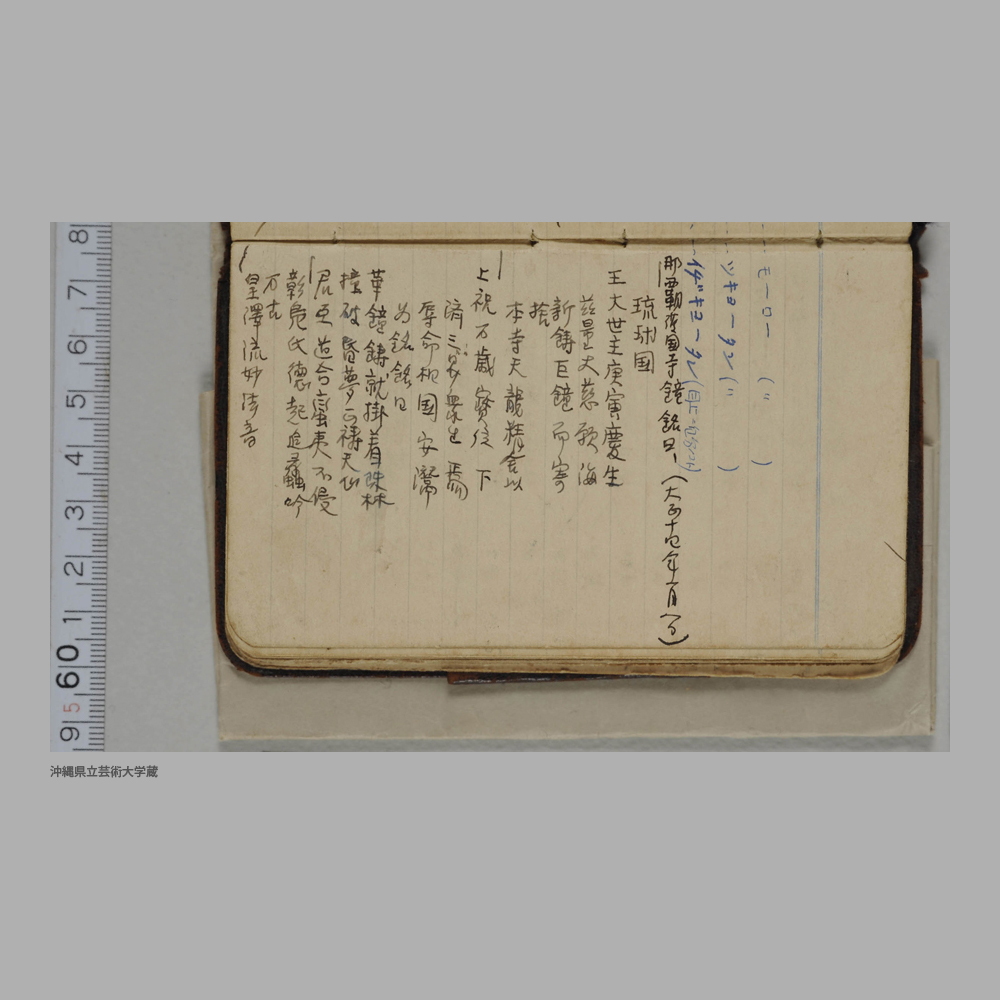 モーロー (〃)
ツキヨータン(〃)
イザキヨータン(
那覇護国寺鏡銘曰、(大正十四年一月八日)
琉球国
王大世主庚寅慶生
茲量大慈願海
新鋳巨鏡而寄
捨
本寺天龍精舎以
上祝万歳寳位下
済三界衆生焉
辱命相国安潜
为銘銘曰
華鐘鋳就掛着珠林
撞破昏夢正祷天心
君臣道合蛮夷不侵
彰鳬氏徳起追蠡吟
万古
皇澤流妙法音
8 7 6 5 4 3 2 1 60 9 5
沖縄県立芸術大学蔵